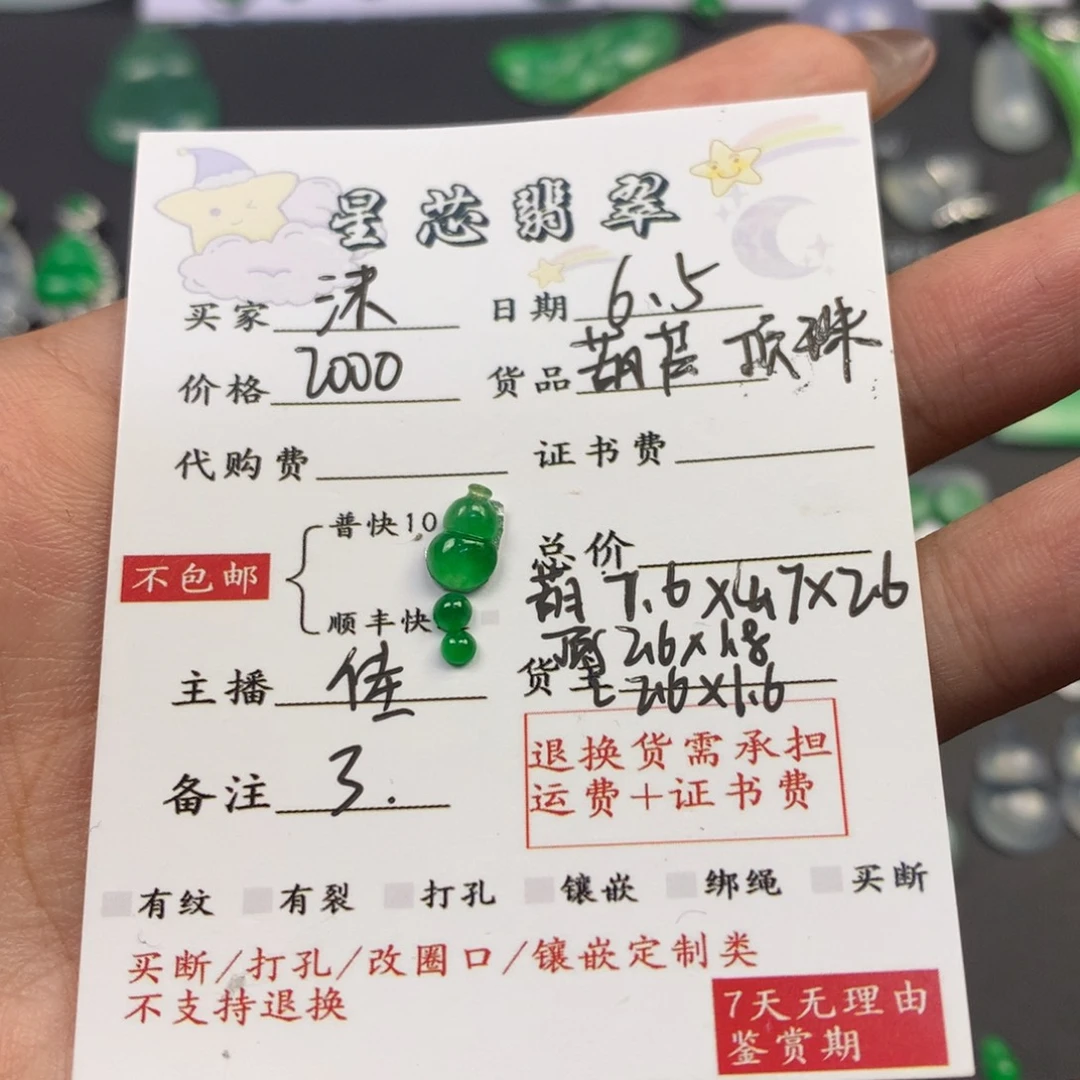 星芯翡翠
买家 沫 日期 6.5
价格 2000 货品 葫芦 顶珠
代购费 证书费
普快10
总价
不包邮
葫 7.6×4.7×2.6
顺丰快
2.6×1.8
货主 2.6×1.6
主播 佳
备注 3.
退换货需承担
运费+证书费
有纹 有裂 打孔 镶嵌 绑绳 买断
买断/打孔/改圈口/镶嵌定制类
不支持退换
7天无理由
鉴赏期